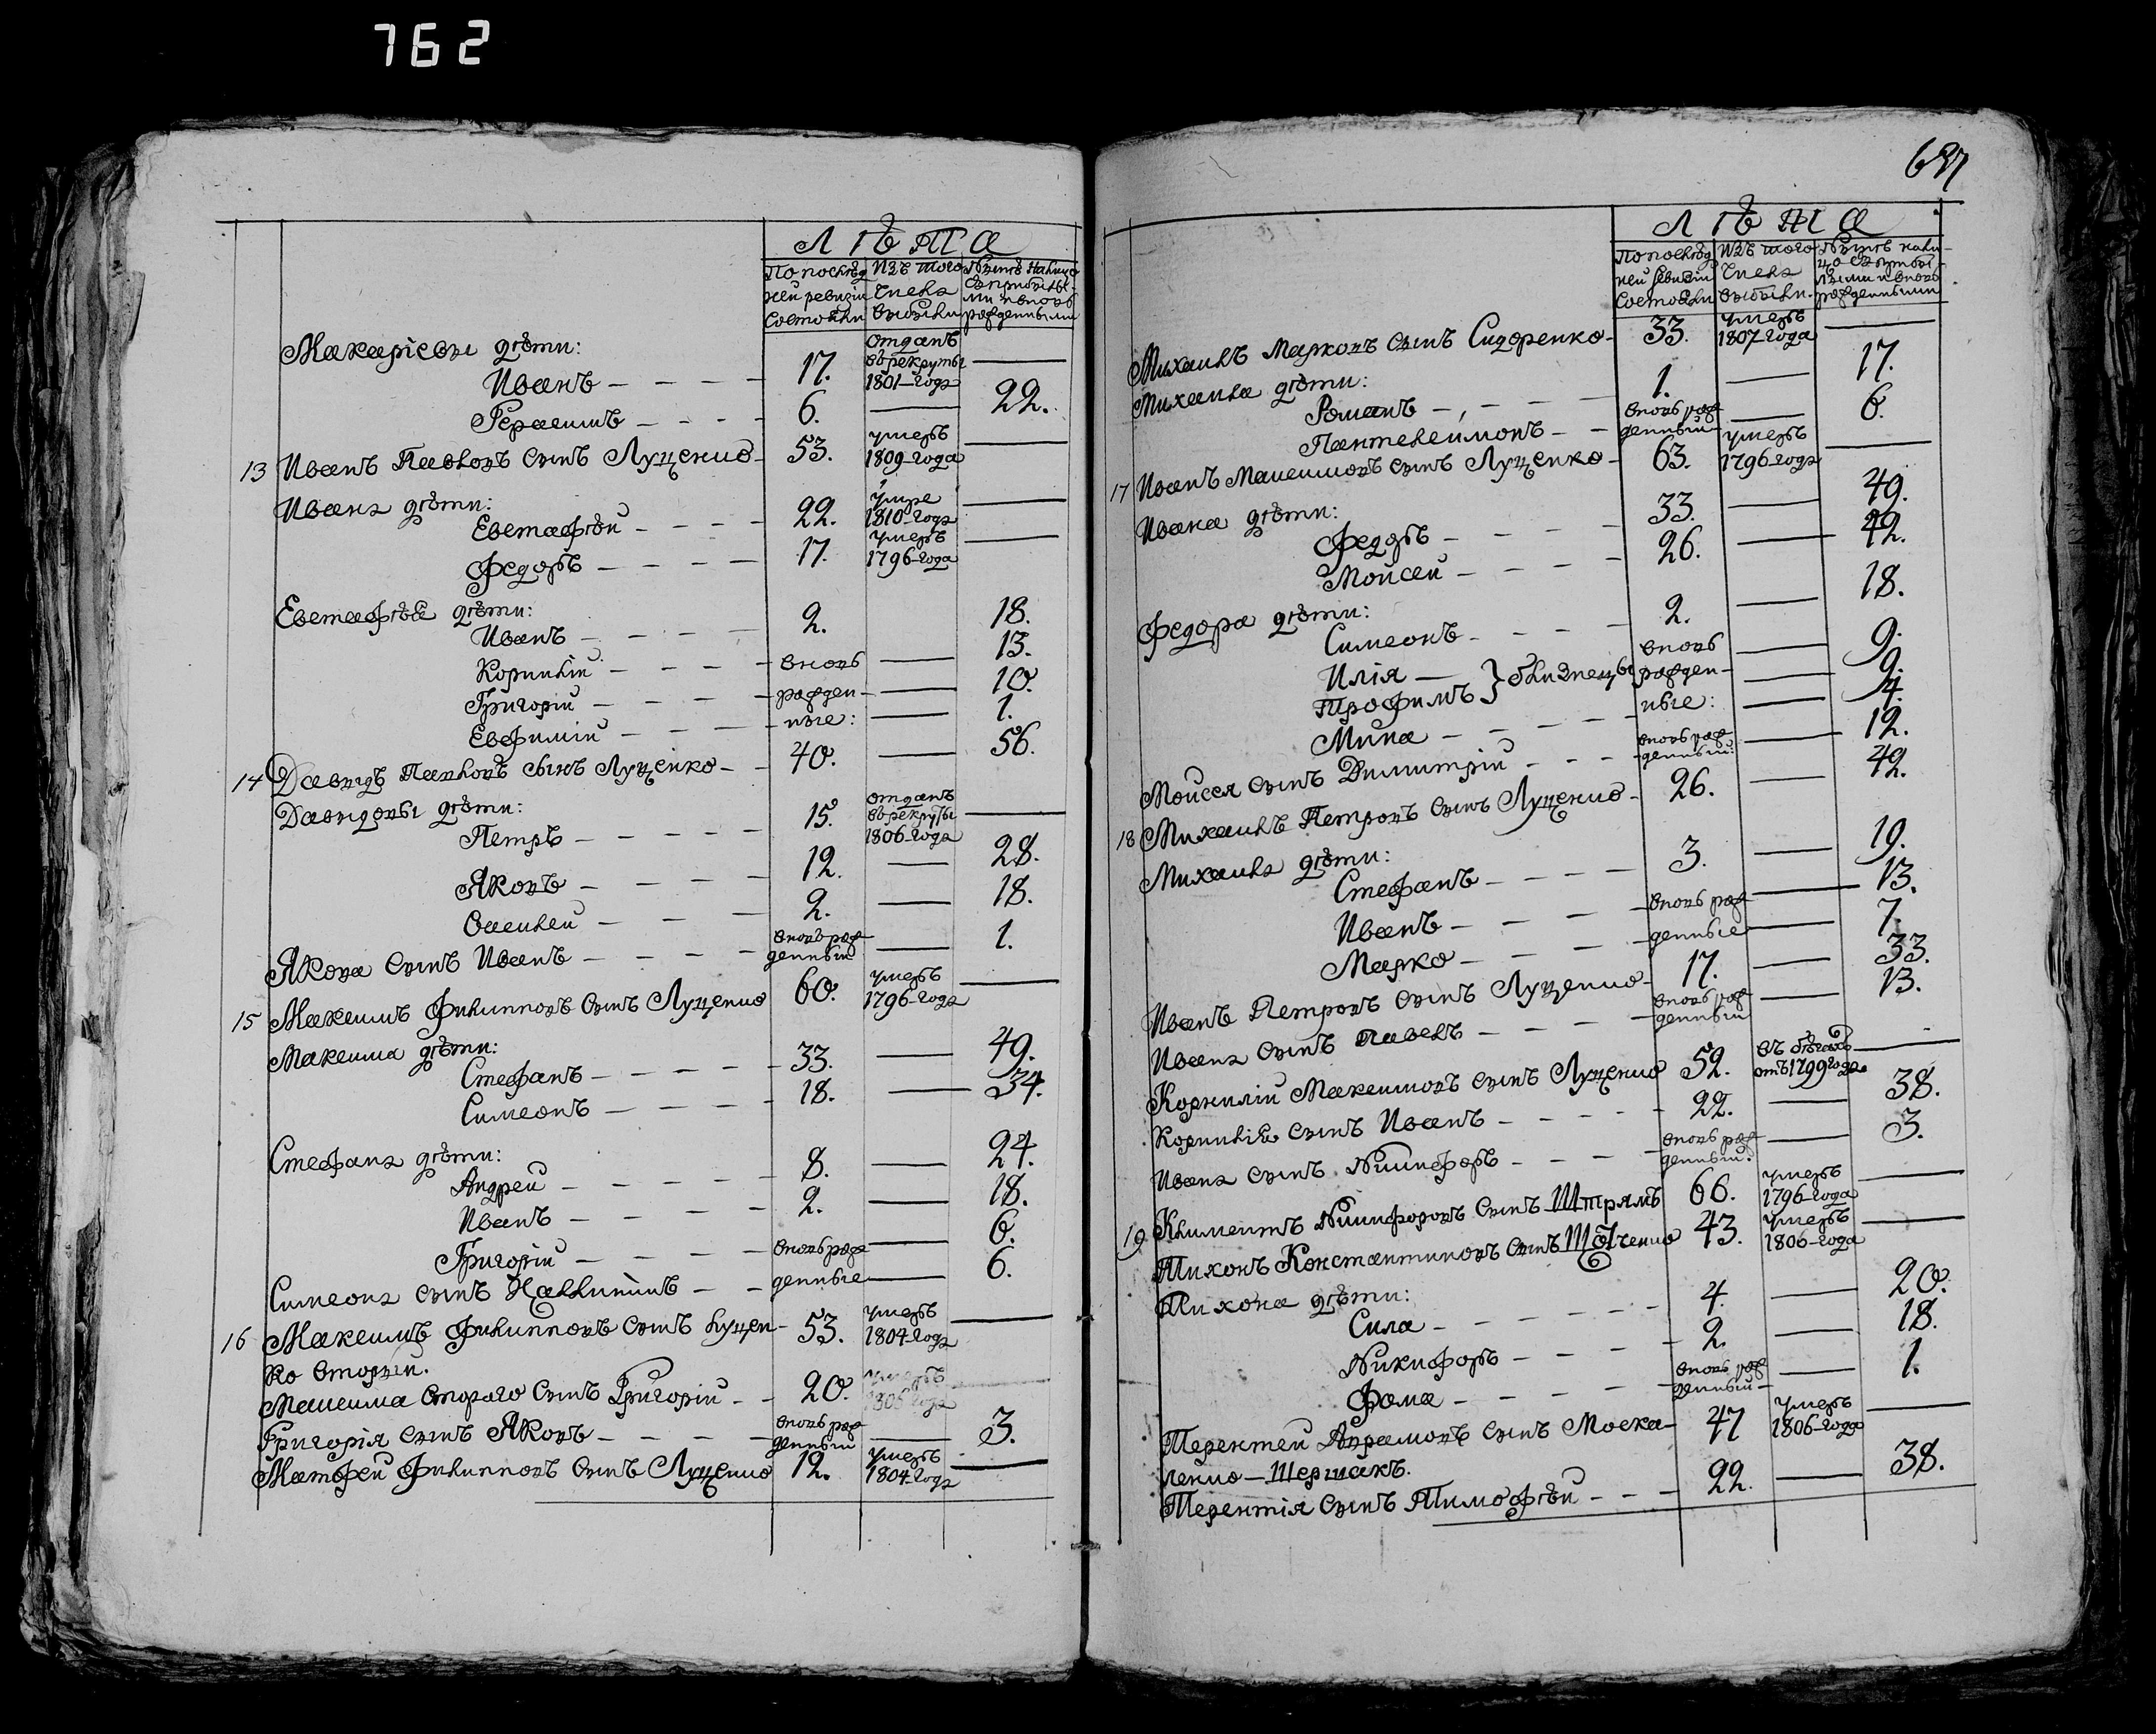 762
Лѣта
По послѣд
ней ревизіи
Состояли
Изъ того
Числа
выбыли
Нынѣ налицо
съ прибылы-
ми и вновь
рожденными
Макаріевы дѣти:
Иванъ — — — — 17. отданъ въ рекруты 1801-года ——
Герасимъ — — — — 6. —— 22.
13 Иванъ Павловъ сынъ Луценко — 53. умеръ 1809-года ——
Ивана дѣти:
Евстафѣй — — — — 22. умре 1810-года ——
Федоръ — — — — 17. умеръ 1796-года ——
Евстафѣя дѣти:
Иванъ — — — — 2. 18.
Корнилій — — — — вновь —— 13.
Григорій — — — — рожден- —— 10.
Евфимій — — — — ные: —— 1.
14 Давидъ Павловъ сынъ Луценко — — 40. —— 56.
Давидовы дѣти:
Петръ — — — — 15. отданъ въ рекруты 1806-года ——
Яковъ — — — — 12. —— 28.
Алексѣй — — — — 2. —— 18.
Якова сынъ Иванъ — — — — вновь рож- денный —— 1.
15 Максимъ Филипповъ сынъ Луценко 60. умеръ 1796-года ——
Максима дѣти:
Стефанъ — — — — 33. —— 49.
Симеонъ — — — — 18. —— 34.
Стефана дѣти:
Андрей — — — — 8. —— 24.
Иванъ — — — — 2. —— 18.
Григорій — — — — вновь рож- —— 6.
Симеона сынъ — — денные —— 6.
16 Максимъ Филипповъ сынъ Луцен- 53. умеръ 1804-года ——
ко вторый.
Максима втораго сынъ Григорій — — 20. умеръ года ——
Григорія сынъ Яковъ — — — — вновь рож- денный —— 3.
Матфей Филипповъ сынъ Луценко 12. умеръ 1804-года ——
Лѣта
По послѣд
ней ревизіи
Состояли
Изъ того
Числа
выбыли.
Нынѣ нали-
цо съ прибы-
лыми и вновь
рожденными
Михаилъ Марковъ сынъ Сидоренко — 33. умеръ 1807-года ——
Михаила дѣти:
Романъ — — — — 1. —— 17.
Пантелеимонъ — — вновь рож- денный —— 6.
17 Иванъ Максимовъ сынъ Луценко — 63. умеръ 1796-года ——
Ивана дѣти:
Федоръ — — — — 33. —— 49.
Мойсей — — — — 26. —— 42.
Федора дѣти:
Симеонъ — — — — 2. —— 18.
Илія — } близнецы вновь —— 9.
Трофимъ } рожден- —— 9.
Мина — — — — ные: —— 4.
Мойсея сынъ Димитрій — — — вновь рож- денный: —— 12.
18 Михаилъ Петровъ сынъ Луценко — 26. —— 42.
Михаила дѣти:
Стефанъ — — — — 3. —— 19.
Иванъ — — — — вновь рож- —— 13.
Марко — — — — денные —— 7.
Иванъ Петровъ сынъ Луценко — 17. —— 33.
Ивана сынъ Павелъ — — — — вновь рож- денный —— 13.
Корнилій Максимовъ сынъ Луценко 52. въ бѣгахъ отъ 1799 года ——
Корнилія сынъ Иванъ — — — — 22. —— 38.
Ивана сынъ Никифоръ — — — — вновь рож- денный. —— 3.
19 Климентъ Никифоровъ сынъ Штрямъ 66. умеръ 1796-года ——
Тихонъ Константиновъ сынъ 43. умеръ 1806-года ——
Тихона дѣти:
Сила — — — — 4. —— 20.
Никифоръ — — — — 2. —— 18.
Фома — — — — вновь рож- денный —— 1.
Терентей Аврамовъ сынъ Моска- 47 умеръ 1806-года ——
ленко —
Терентія сынъ Тимофѣй — — — 22. —— 38.